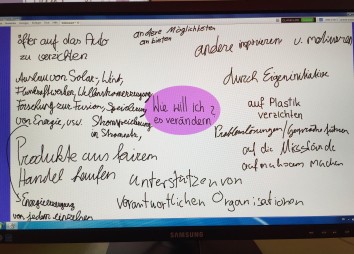 öfter auf das Auto
zu verzichten
andere Möglichkeiten
anbieten
andere inspirieren u. motivieren
Ausbau von Solar-, Wind,
Forschung zur Fusion, Speicherung
von Energie, usw. Stromspeicherung
in Stromnetz,
Wie will ich
es verändern?
durch Eigeninitiative
auf Plastik
verzichten
Problemlösungen/Gespräche führen
auf die Missstände
aufmerksam machen
Produkte aus fairem
Handel kaufen
unterstützen von
verantwortlichen Organisationen
Energieerzeugung
von jedem einzelnen
SAMSUNG